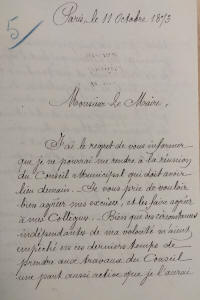 5
Paris, le 11 Octobre 1873
Monsieur le Maire,
J'ai le regret de vous informer
que je ne pourrai me rendre à la réunion
du Conseil Municipal qui doit avoir
lieu demain. Je vous prie de vouloir
bien agréer mes excuses, et les faire agréer
à mes Collègues. Bien que des circonstances
indépendantes de ma volonté m'aient
empêché en ces derniers temps de
prendre aux travaux du Conseil
une part aussi active que je l'aurai